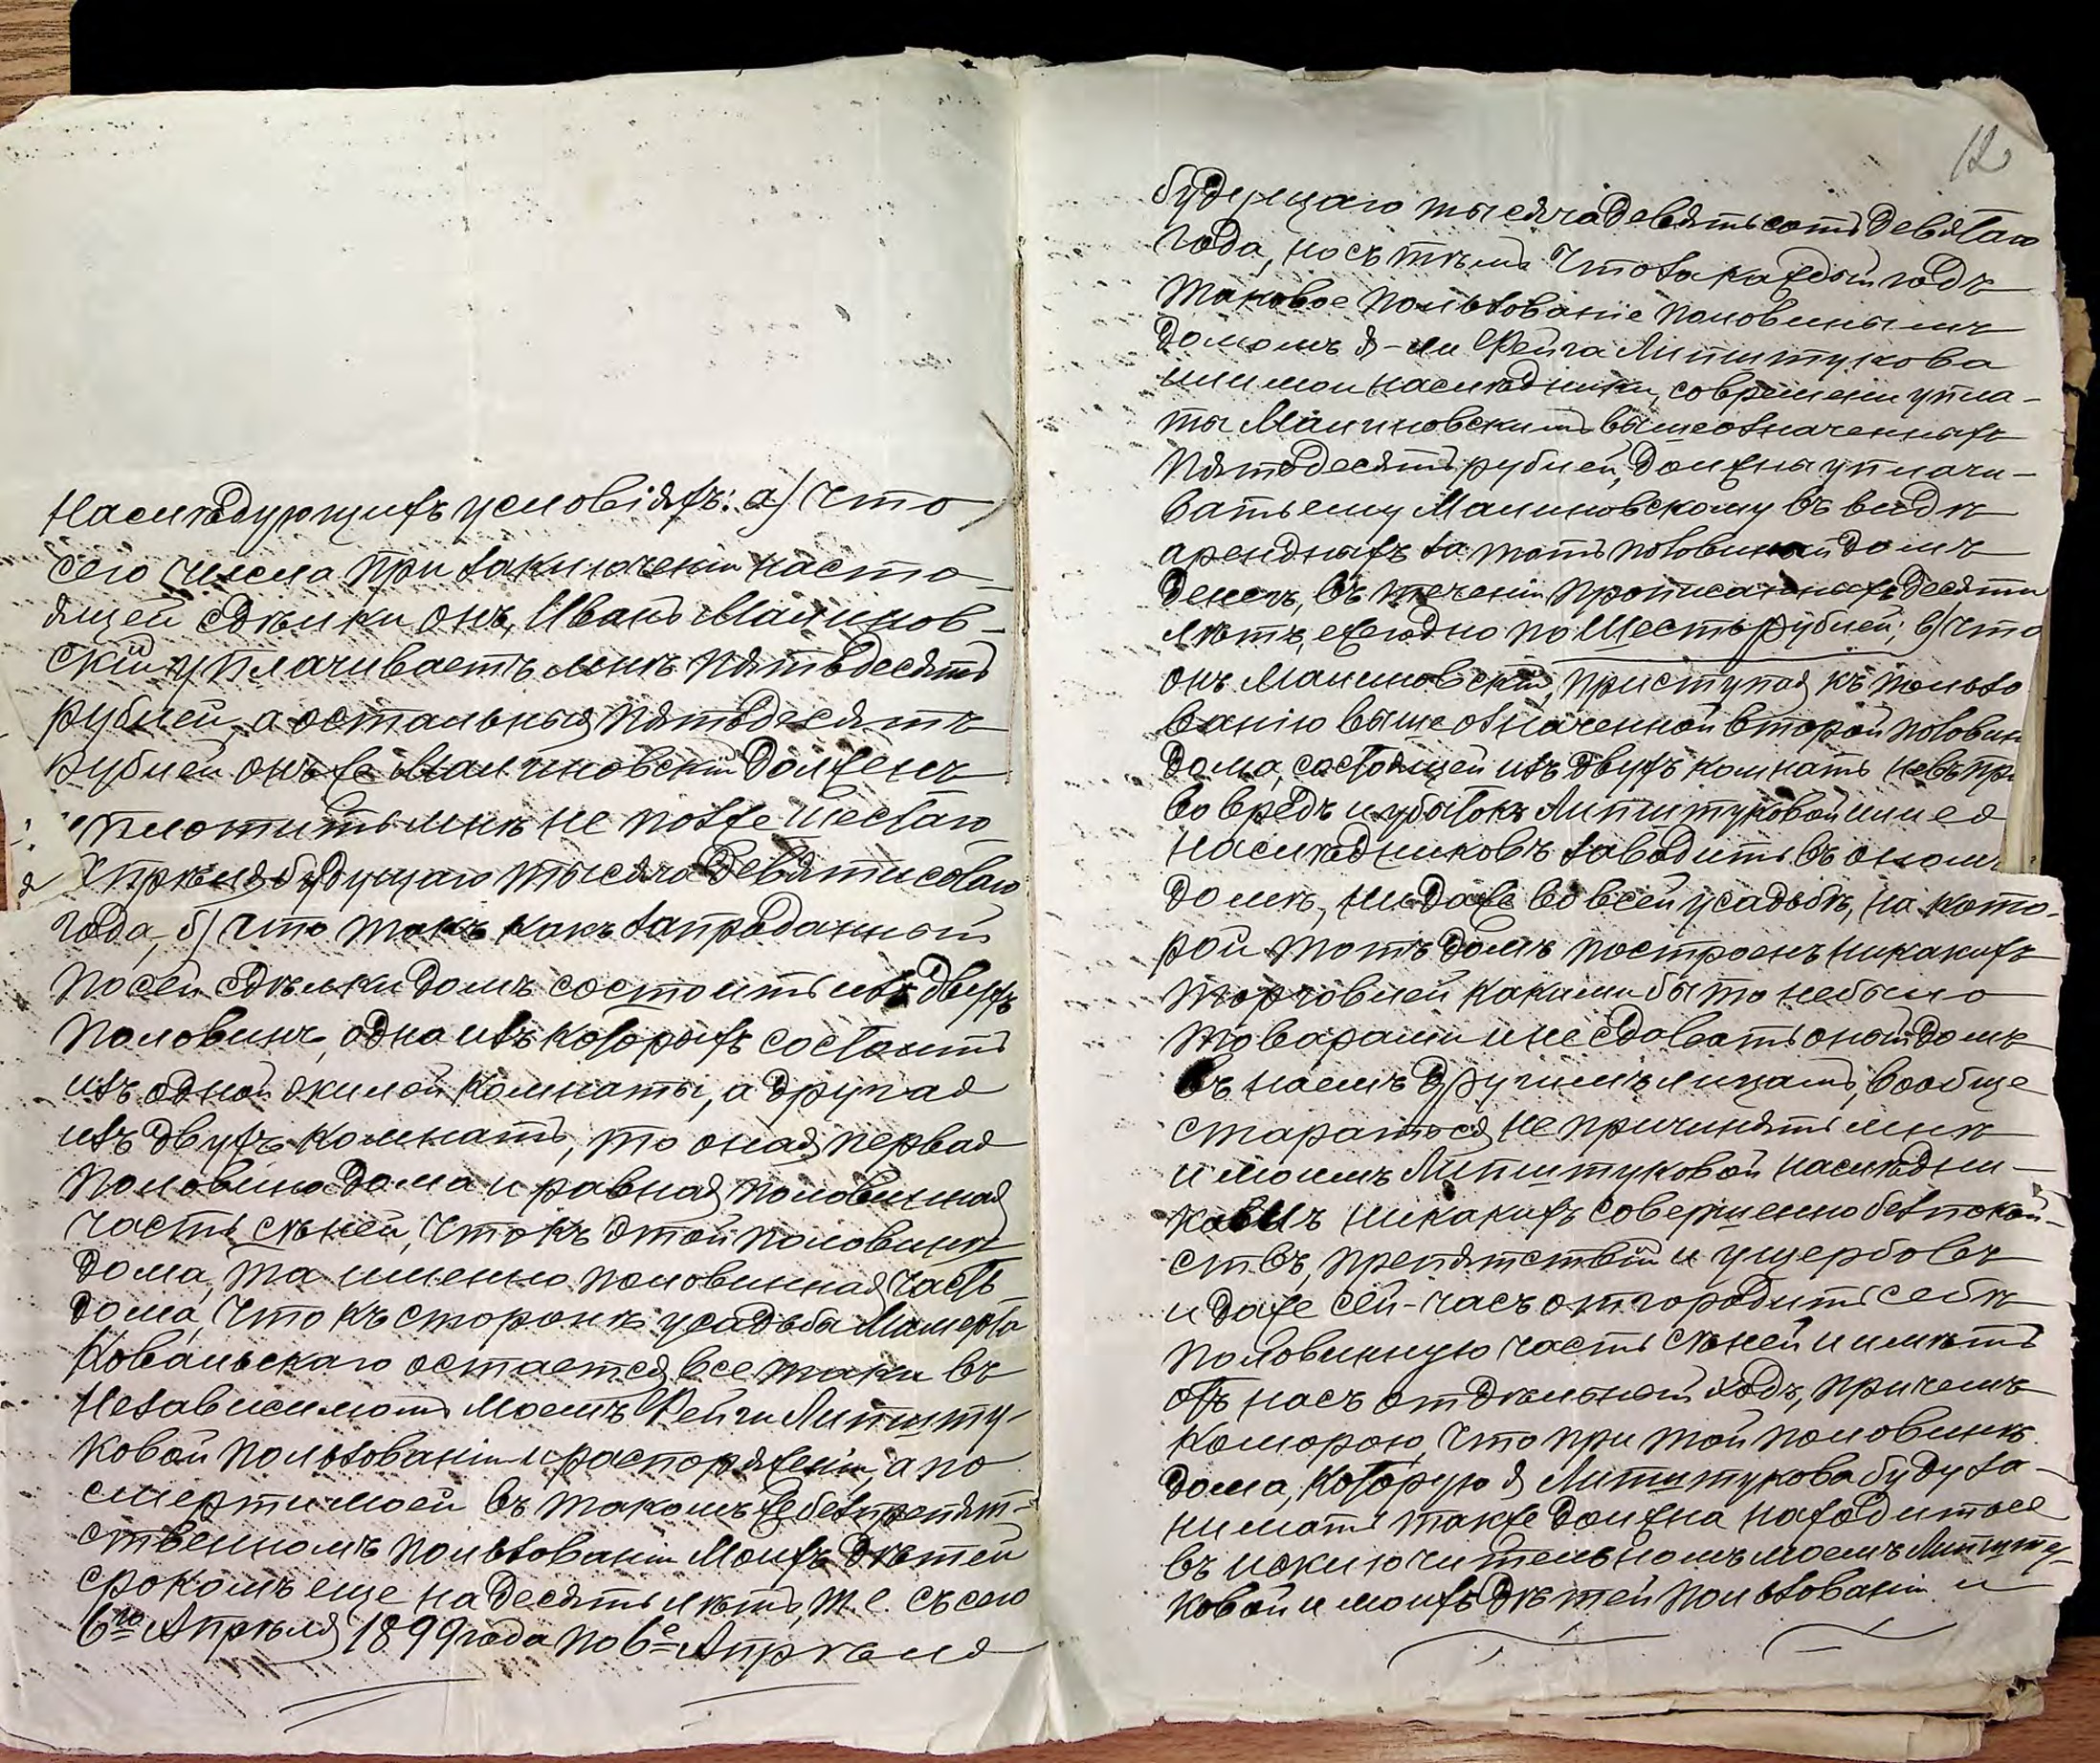 На слѣдующихъ условіяхъ: а) что
сего числа при заключеніи насто-
ящей сдѣлки онъ, Иванъ Малинов-
скій уплачиваетъ мнѣ пятьдесятъ
рублей, а остальныя пятьдесятъ
рублей онъ же Малиновскій долженъ
уплотить мнѣ не позже шестаго
Апрѣля будущаго тысяча девятисотаго
года, б) что такъ какъ запроданный
по сей сдѣлки домъ состоитъ изъ двухъ
половинъ, одна изъ которыхъ состоитъ
изъ одной жилой комнаты, а другая
изъ двухъ комнатъ, то оная первая
половина дома и равная половинная
часть сѣней, что къ этой половинѣ
дома, та именно половинная часть
дома, что къ сторонѣ усадьбы Мамерта
Ковальскаго остается все таки въ
независимомъ моемъ Фейги Липшту-
ковой пользованіи и распоряженіи, а по
смерти моей въ такомъ же безпрепят-
ственномъ пользованіи моихъ дѣтей
срокомъ еще на десять лѣтъ, т.е. съ сего
6го Апрѣля 1899 года по 6е Апрѣля
12
будущаго тысяча девятьсотъ девятаго
года, но съ тѣмъ что за каждый годъ
таковое пользованіе половинымъ
домомъ я-ли Фейга Липштукова
или мои наслѣдники, со времени упла-
ты Малиновскимъ вышеозначенныхъ
пятьдесятъ рублей, должна уплачи-
вать ему Малиновскому въ видѣ
арендныхъ за тотъ половиный домъ
денегъ, въ теченіи прописанныхъ десяти
лѣтъ, ежегодно по шесть рублей; в) что
онъ Малиновскій, приступая къ пользо
ванію вышеозначенной второй половин
дома, состоящей изъ двухъ комнатъ невпра
во вредъ и убытокъ Липштуковой или ея
наслѣдниковъ заводить въ ономъ
домѣ, ни даже во всей усадьбѣ, на кото-
рой тотъ домъ построенъ никакихъ
торговлей какими бы то небыло
товарами и не сдовать оной домъ
въ наемъ другимъ лицамъ, вообще
старатся не причинять мнѣ
и моимъ Липштуковой наслѣдни-
камъ никакихъ совершенно безпокой-
ствъ, препятствій и ущербовъ
и даже сей-часъ отгородить себѣ
половинную часть сѣней и имѣть
отъ насъ отдѣльной ходъ, причемъ
коморою, что при той половинѣ
дома, которую я Липштукова буду за-
нимать также должна находиться
въ исключительномъ моемъ Липшту-
ковой и моихъ дѣтей пользованіи и